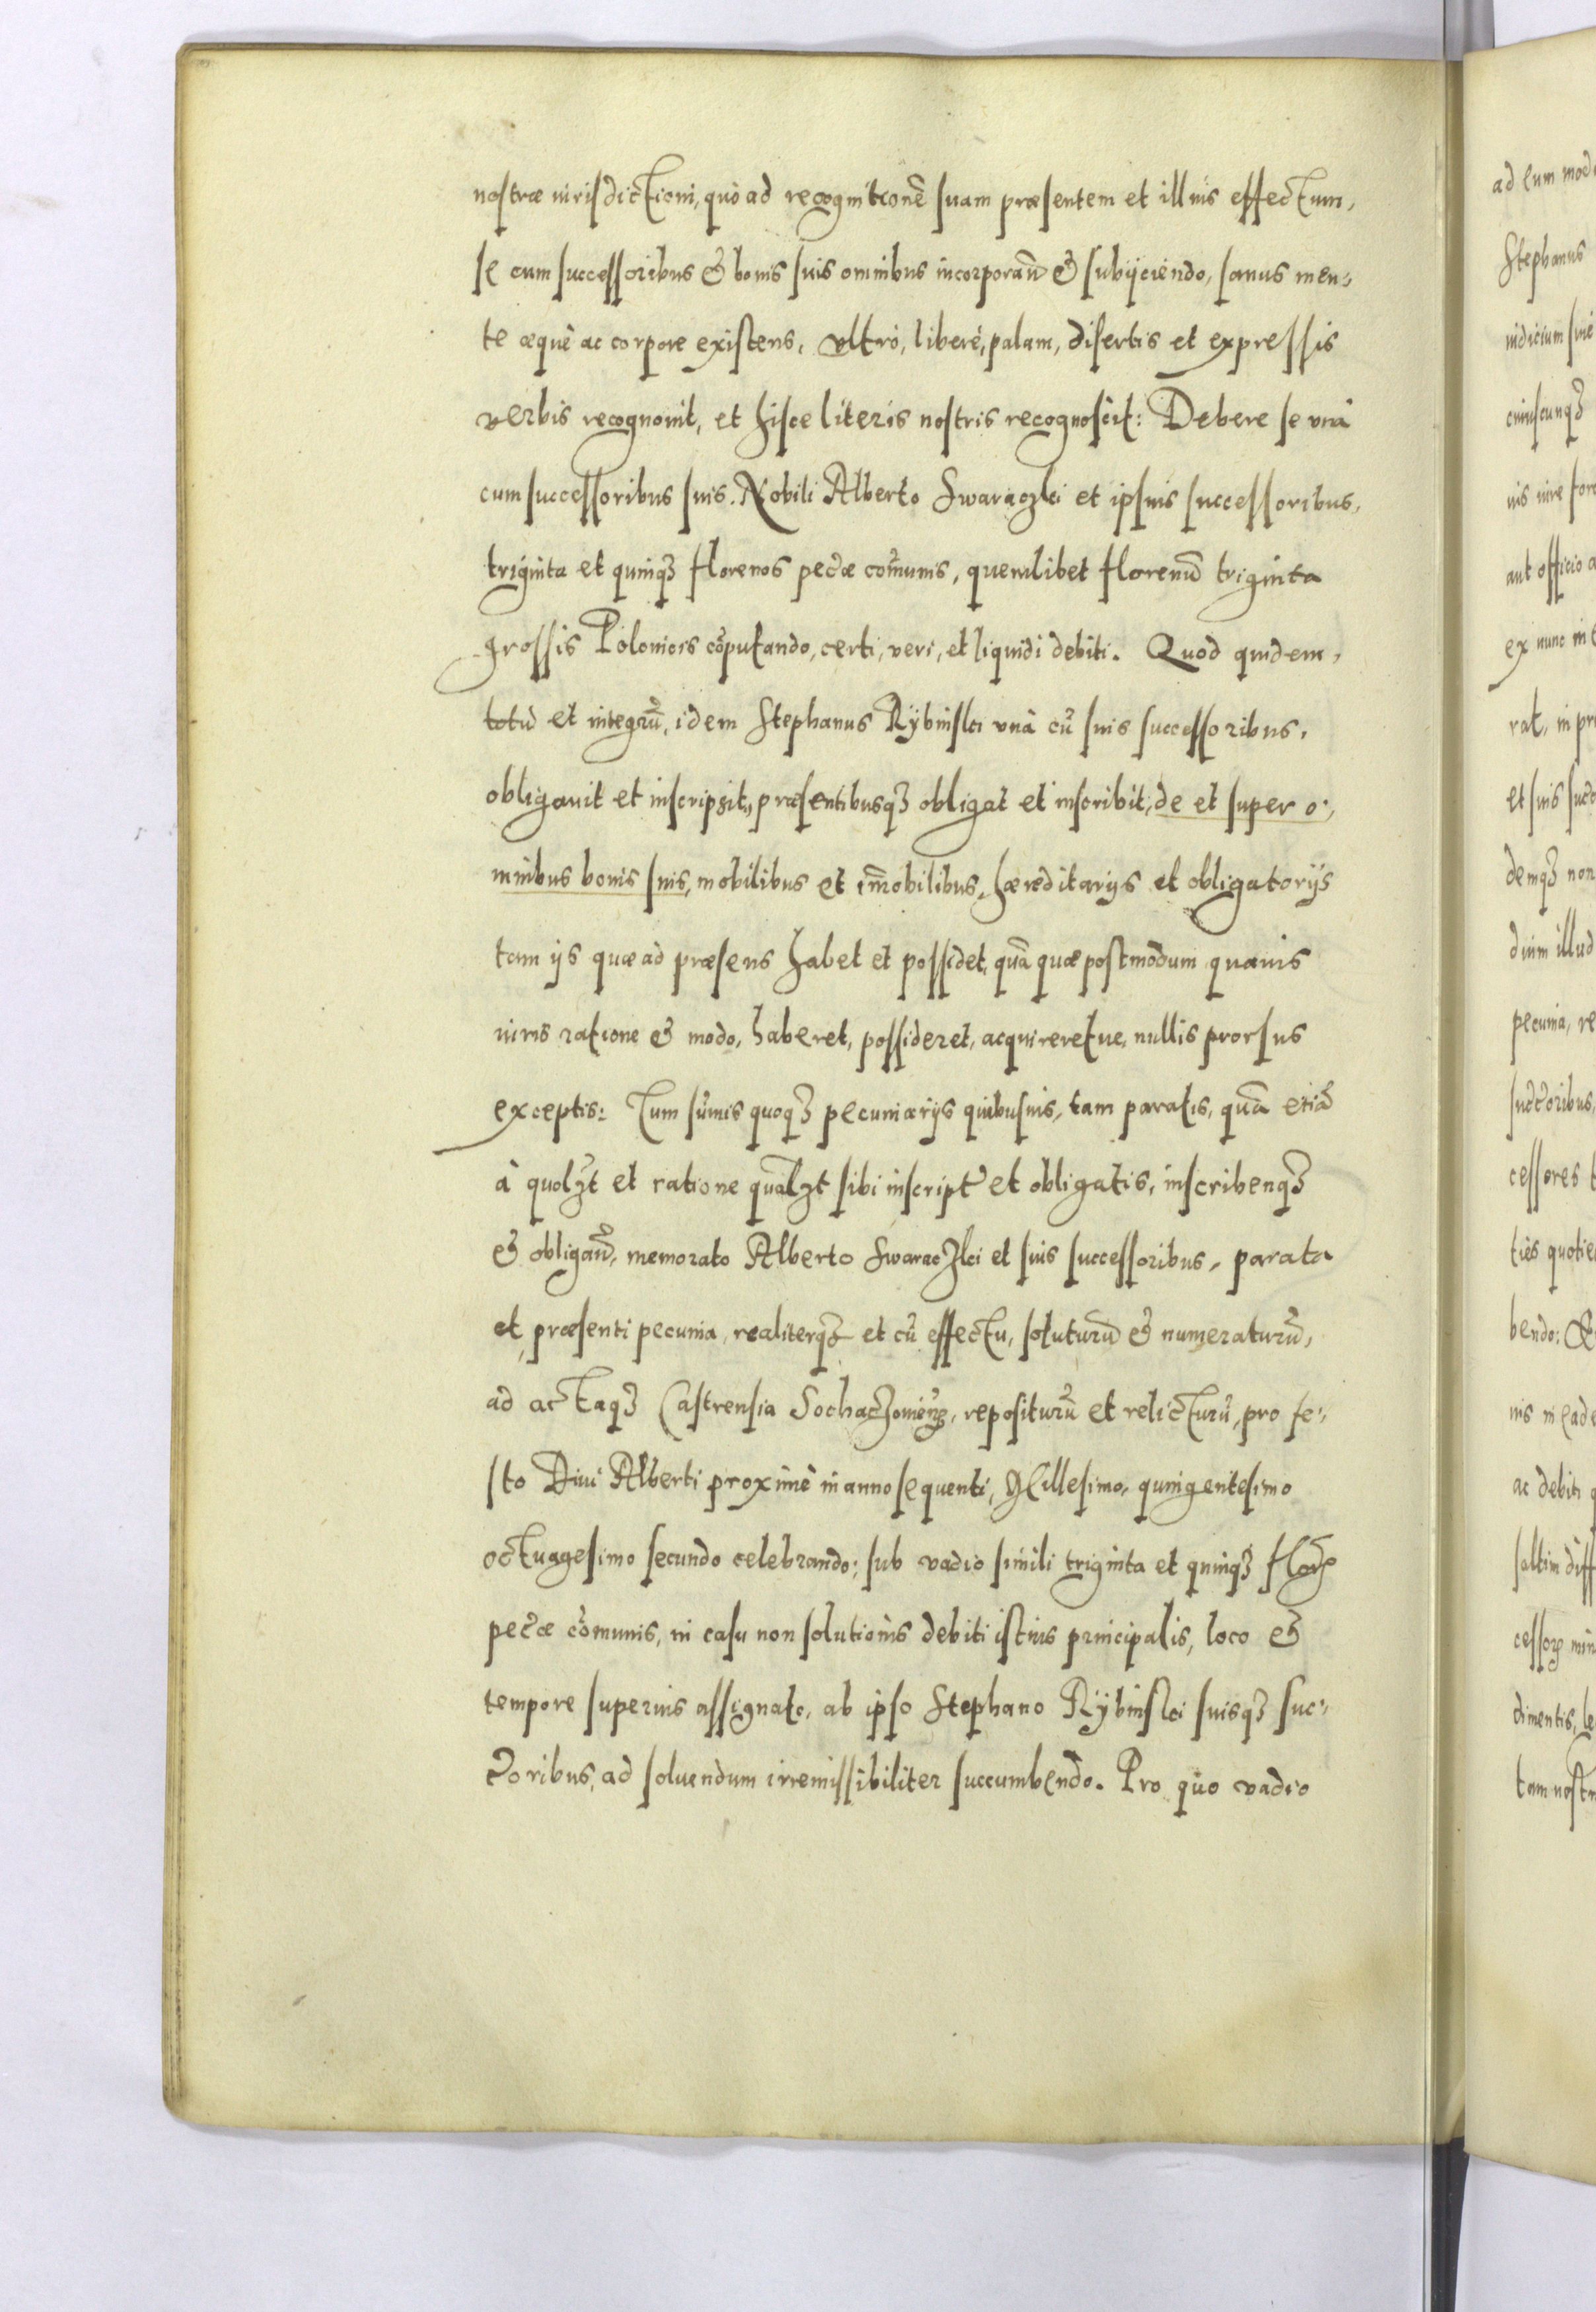 nostræ iurisdictioni, quò ad recognitionē suam præsentem et illius effectum,
se cum successoribus & bonis suis omnibus incorporan̄ & subijciendo, sanus men-
te æquè ac corpore existens, vltrò, liberè, palam, disertis et expressis
verbis recognouit, et hisce literis nostris recognoscit: Debere se vnà
cum successoribus suis. Nobili Alberto Swaraczki et ipsius successoribus,
triginta et quinqȝ florenos pecũæ com̃unis, quemlibet florenū triginta
grossis Polonicis cõputando, certi, veri, et liquidi debiti. Quod quidem,
totū et integrū, idem Stephanus Rÿbinski vnà cū suis successoribus,
obligauit et inscripsit, præsentibusqȝ obligat et inscribit, de et super o-
mnibus bonis suis, mobilibus et im̄obilibus, hæreditarijs et obligatorijs
tam ijs quæ ad præsens habet et possidet, quā quæ postmodum quauis
iuris ratione & modo, haberet, possideret, acquireretue, nullis prorsus
exceptis: Tum sum̃is quoqȝ pecuniarijs quibusuis, tam paratis, quā etiā
à quolȝt et ratione qualȝt sibi inscript̃ et obligatis, inscribenqȝ
& obligan̄, memorato Alberto Swaraczki et suis successoribus, parata
et præsenti pecunia, realiterqȝ et cū effectu, soluturū & numeraturū,
ad actaqȝ Castrensia Sochaczouień̃, repositurū et relicturū, pro fe-
sto Diui Alberti proximè in anno sequenti, Millesimo, quingentesimo
octuagesimo secundo celebrando; sub vadio simili triginta et quinqȝ florꝝ
pecũæ cõmunis, in casu non solutionis debiti istius principalis, loco &
tempore superius assignato, ab ipso Stephano Rÿbinski suisqȝ suc-
c̃oribus, ad soluendum irremissibiliter succumbendo. Pro quo vadio
ad eum mod
Stephanus
iudicium siue
cuiuscunqȝ
uis iure for
aut officio a
ex nunc in
rat, in pr
et suis suc̃
demqȝ non
dium illud
pecunia, re
suc̃oribus,
cessores t
ties quotie
bendo: &
nis in eade
ac debiti q
saltim diff
cessorꝝ min
dimentis, le
tam nostr